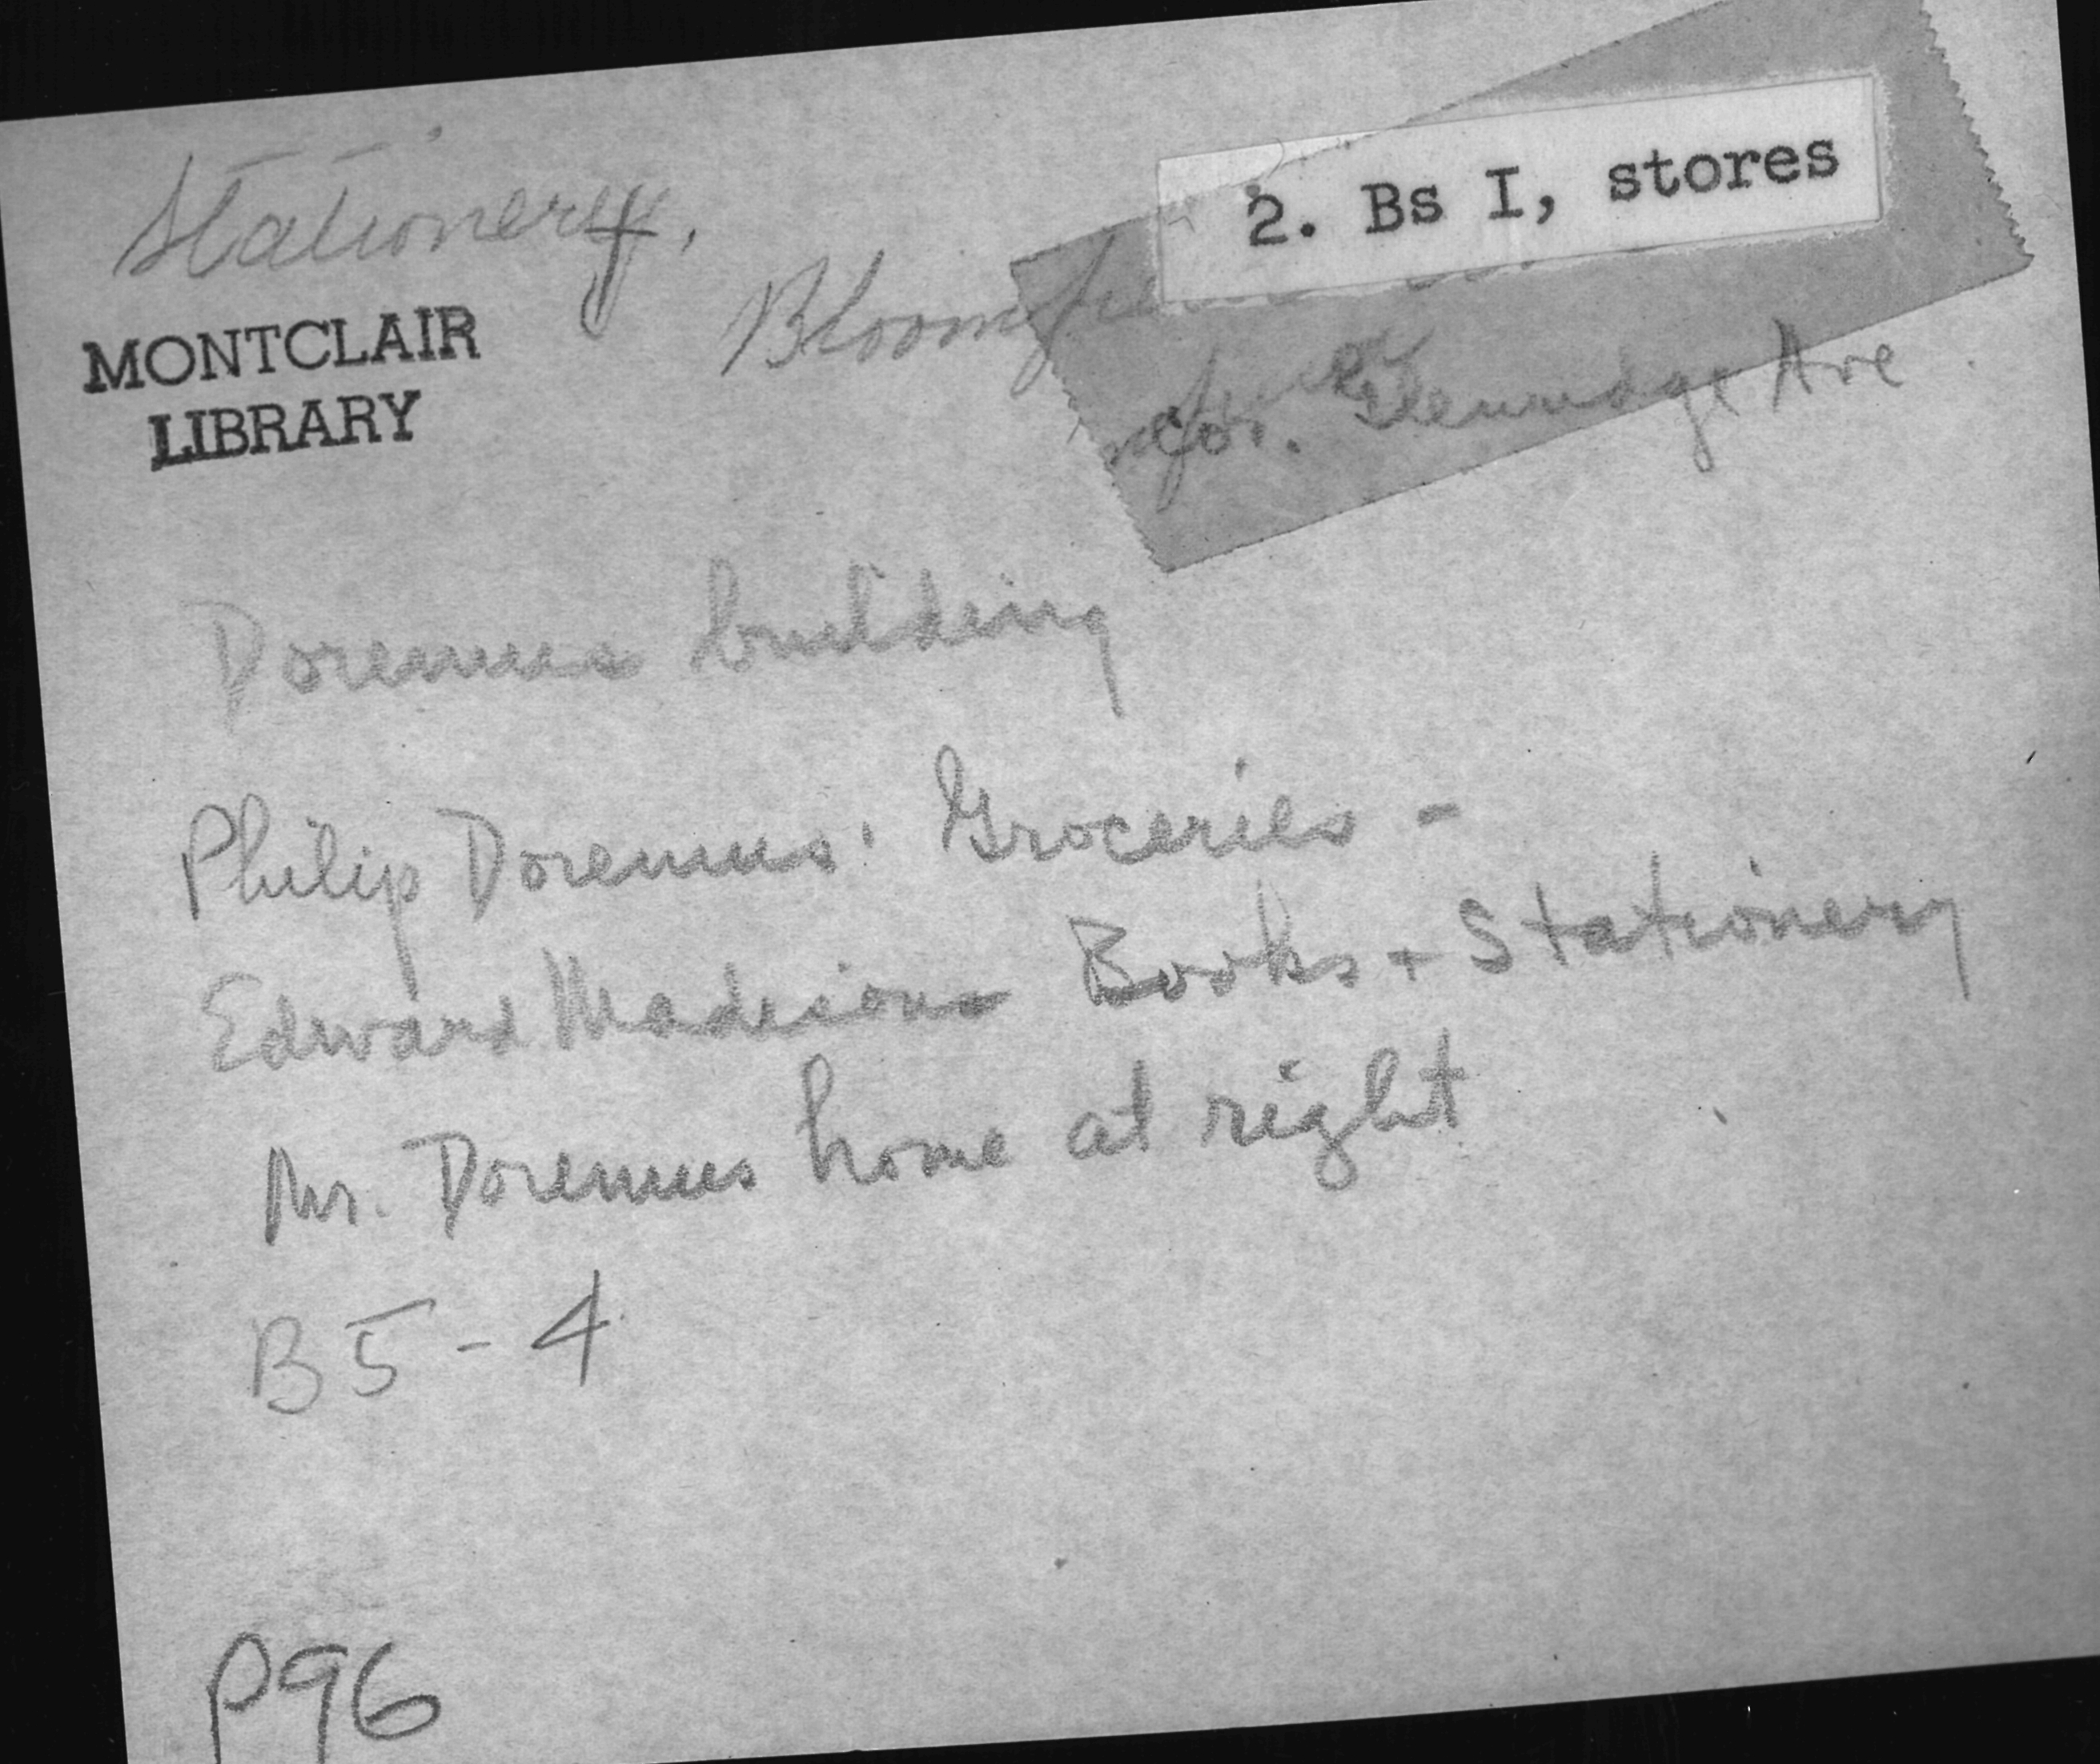 2. Bs I, stores
Stationery,
Bloomfield
MONTCLAIR
LIBRARY
cor. Glenridge Ave
Doremus building
Philip Doremus' Groceries -
Edward Madison Books + Stationery
Mr. Doremus home at right
B5-4
P96